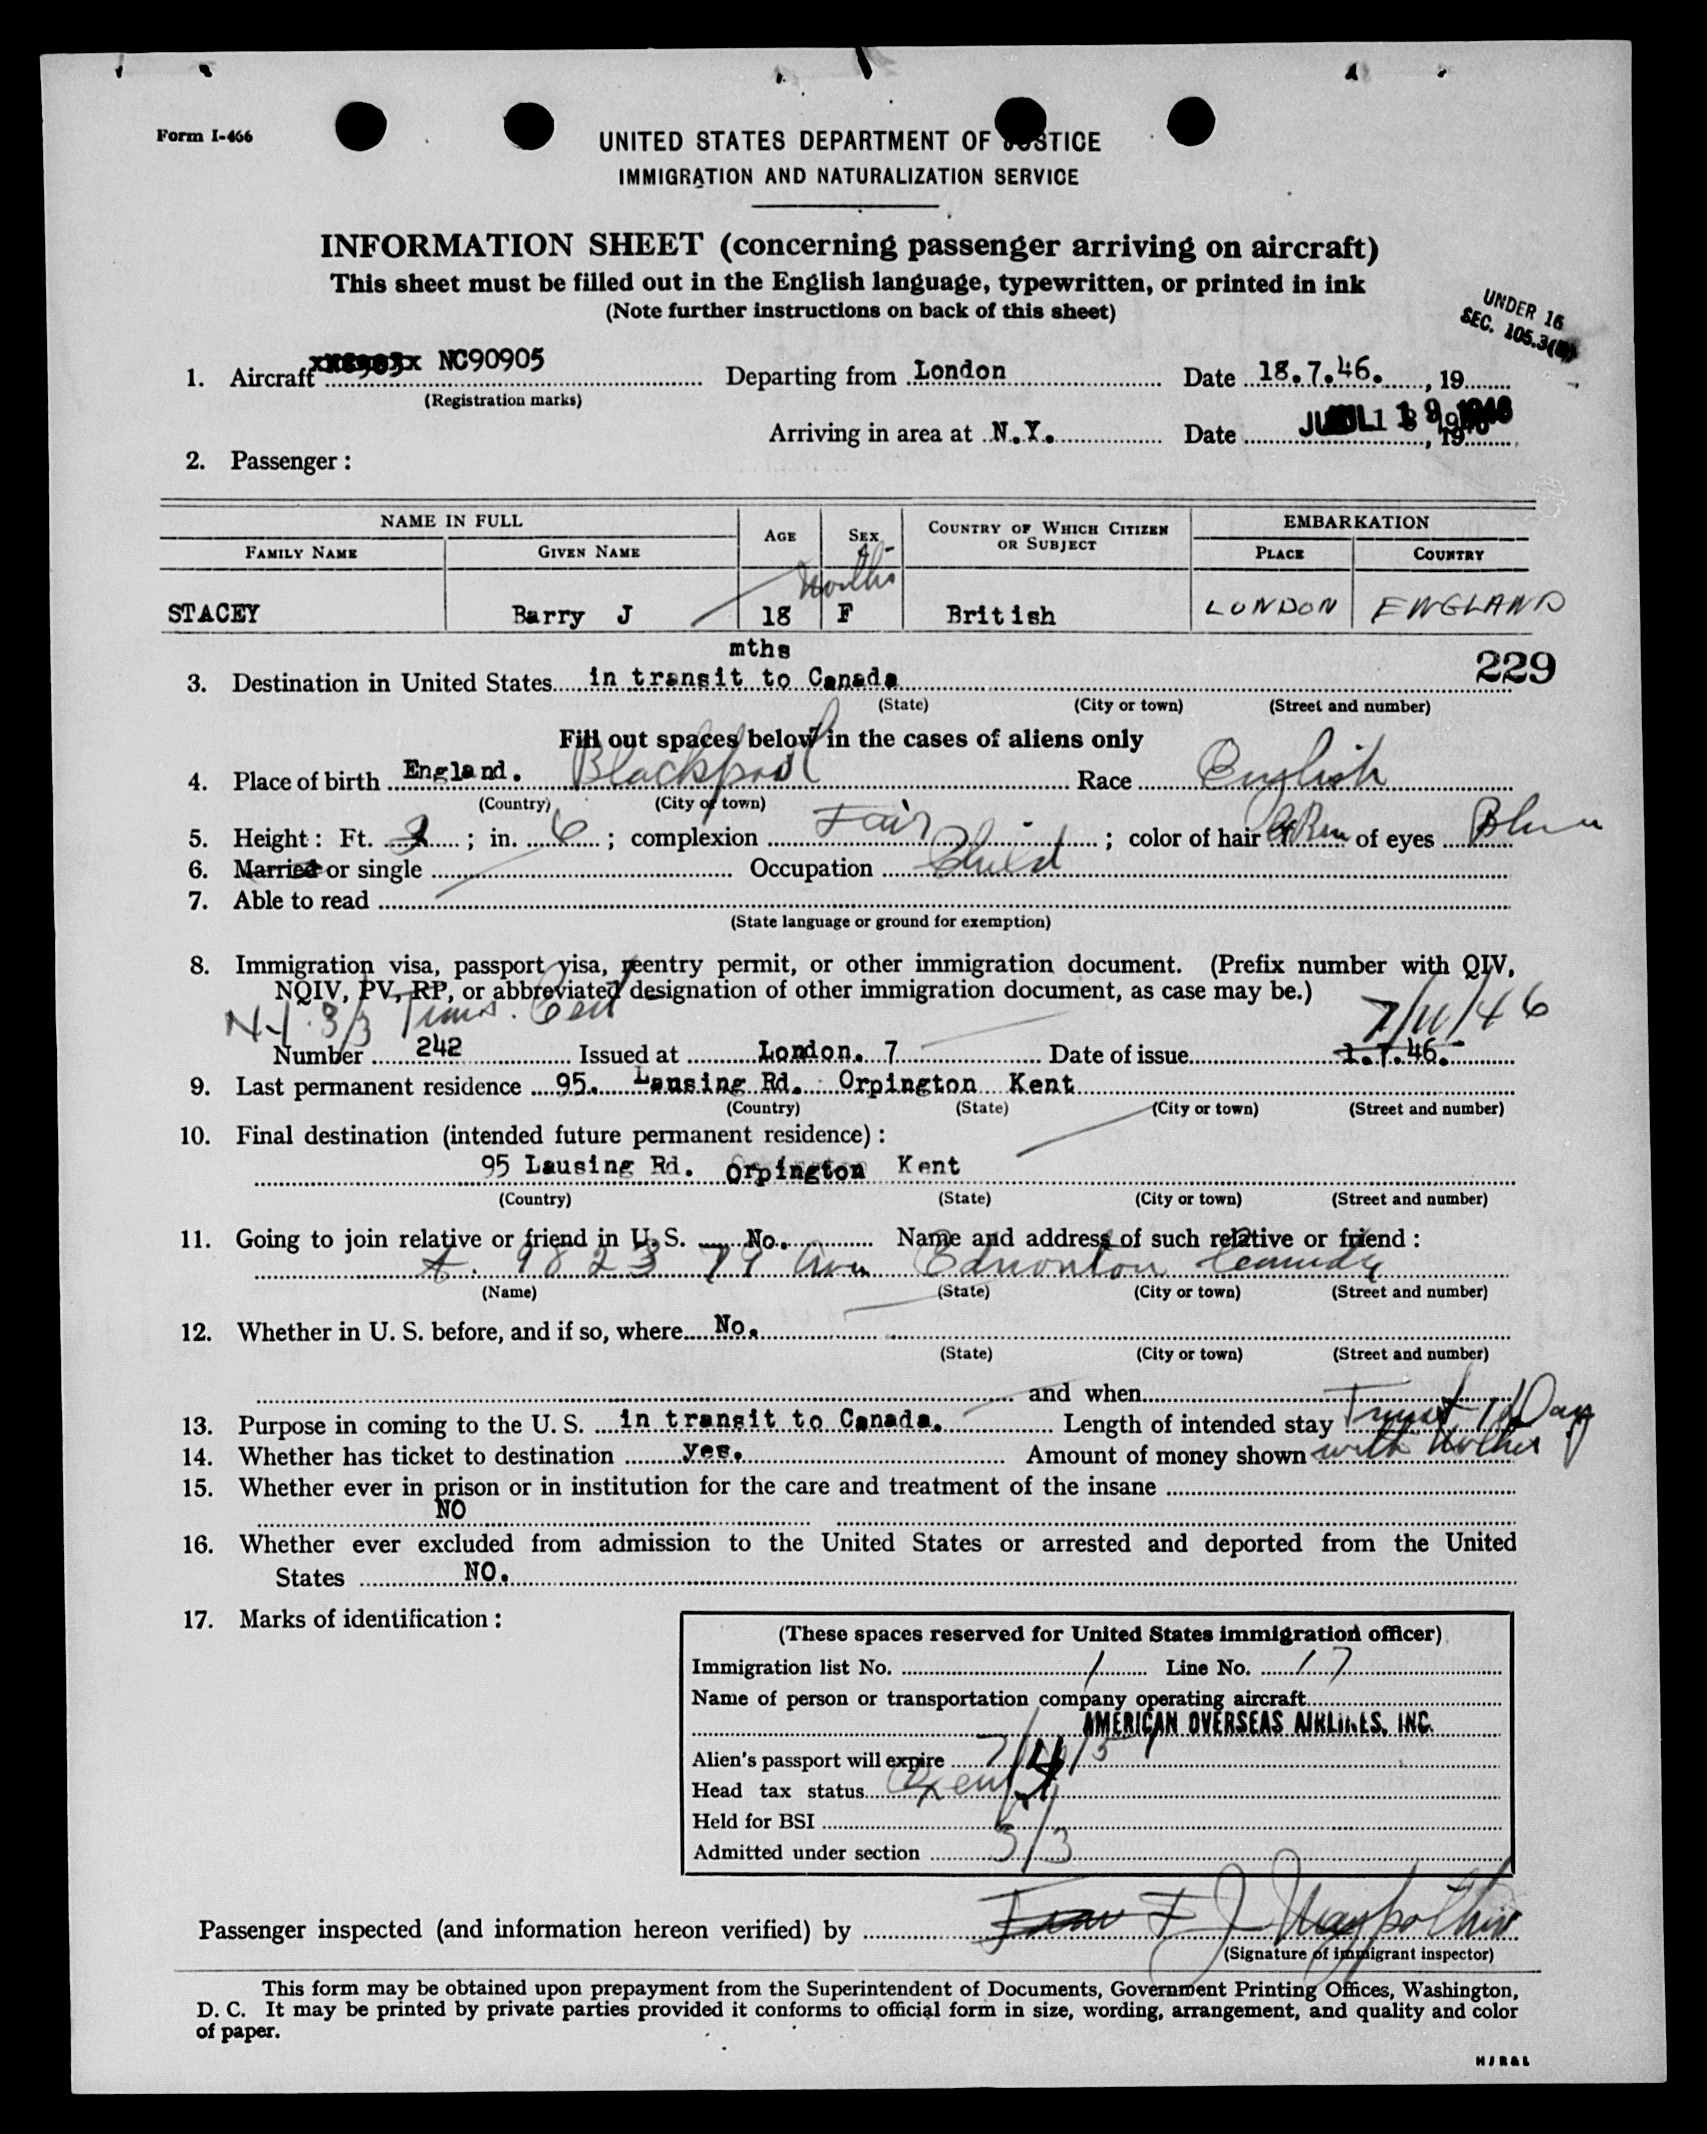 Form I-466
UNITED STATES DEPARTMENT OF JUSTICE
IMMIGRATION AND NATURALIZATION SERVICE
INFORMATION SHEET (concerning passenger arriving on aircraft)
This sheet must be filled out in the English language, typewritten, or printed in ink
(Note further instructions on back of this sheet)
UNDER 16
SEC. 105.3(B)
1. Aircraft NC90905 Departing from London Date 18.7.46. , 19
(Registration marks)
Arriving in area at N.Y. Date JUL 19 1946 , 19
2. Passenger :
NAME IN FULL AGE SEX COUNTRY OF WHICH CITIZEN OR SUBJECT EMBARKATION
FAMILY NAME GIVEN NAME PLACE COUNTRY
Months
STACEY Barry J 18 F British LONDON ENGLAND
mths
229
3. Destination in United States in transit to Canada
(State) (City or town) (Street and number)
Fill out spaces below in the cases of aliens only
4. Place of birth England. Blackpool Race English
(Country) (City or town)
5. Height : Ft. ; in. 6 ; complexion Fair ; color of hair Brn of eyes Blue
6. Married or single Occupation Child
7. Able to read
(State language or ground for exemption)
8. Immigration visa, passport visa, reentry permit, or other immigration document. (Prefix number with QIV,
NQIV, PV, RP, or abbreviated designation of other immigration document, as case may be.)
3/3 Trans. Cert 7/11/46
Number 242 Issued at London. 7 Date of issue 1.7.46.-
9. Last permanent residence 95. Lausing Rd. Orpington Kent
(Country) (State) (City or town) (Street and number)
10. Final destination (intended future permanent residence) :
95 Lausing Rd. Orpington Kent
(Country) (State) (City or town) (Street and number)
11. Going to join relative or friend in U. S. No. Name and address of such relative or friend :
9823 79 Ave Edmonton Canada
(Name) (State) (City or town) (Street and number)
12. Whether in U. S. before, and if so, where No.
(State) (City or town) (Street and number)
and when
13. Purpose in coming to the U. S. in transit to Canada. Length of intended stay Transit 1 Day
14. Whether has ticket to destination yes. Amount of money shown with Mother
15. Whether ever in prison or in institution for the care and treatment of the insane
NO
16. Whether ever excluded from admission to the United States or arrested and deported from the United
States NO.
17. Marks of identification :
(These spaces reserved for United States immigration officer)
Immigration list No. 1 Line No. 17
Name of person or transportation company operating aircraft
AMERICAN OVERSEAS AIRLINES, INC.
Alien's passport will expire
Head tax status Exempt
Held for BSI
Admitted under section 3/3
Passenger inspected (and information hereon verified) by
(Signature of immigrant inspector)
This form may be obtained upon prepayment from the Superintendent of Documents, Government Printing Offices, Washington,
D. C. It may be printed by private parties provided it conforms to official form in size, wording, arrangement, and quality and color
of paper.